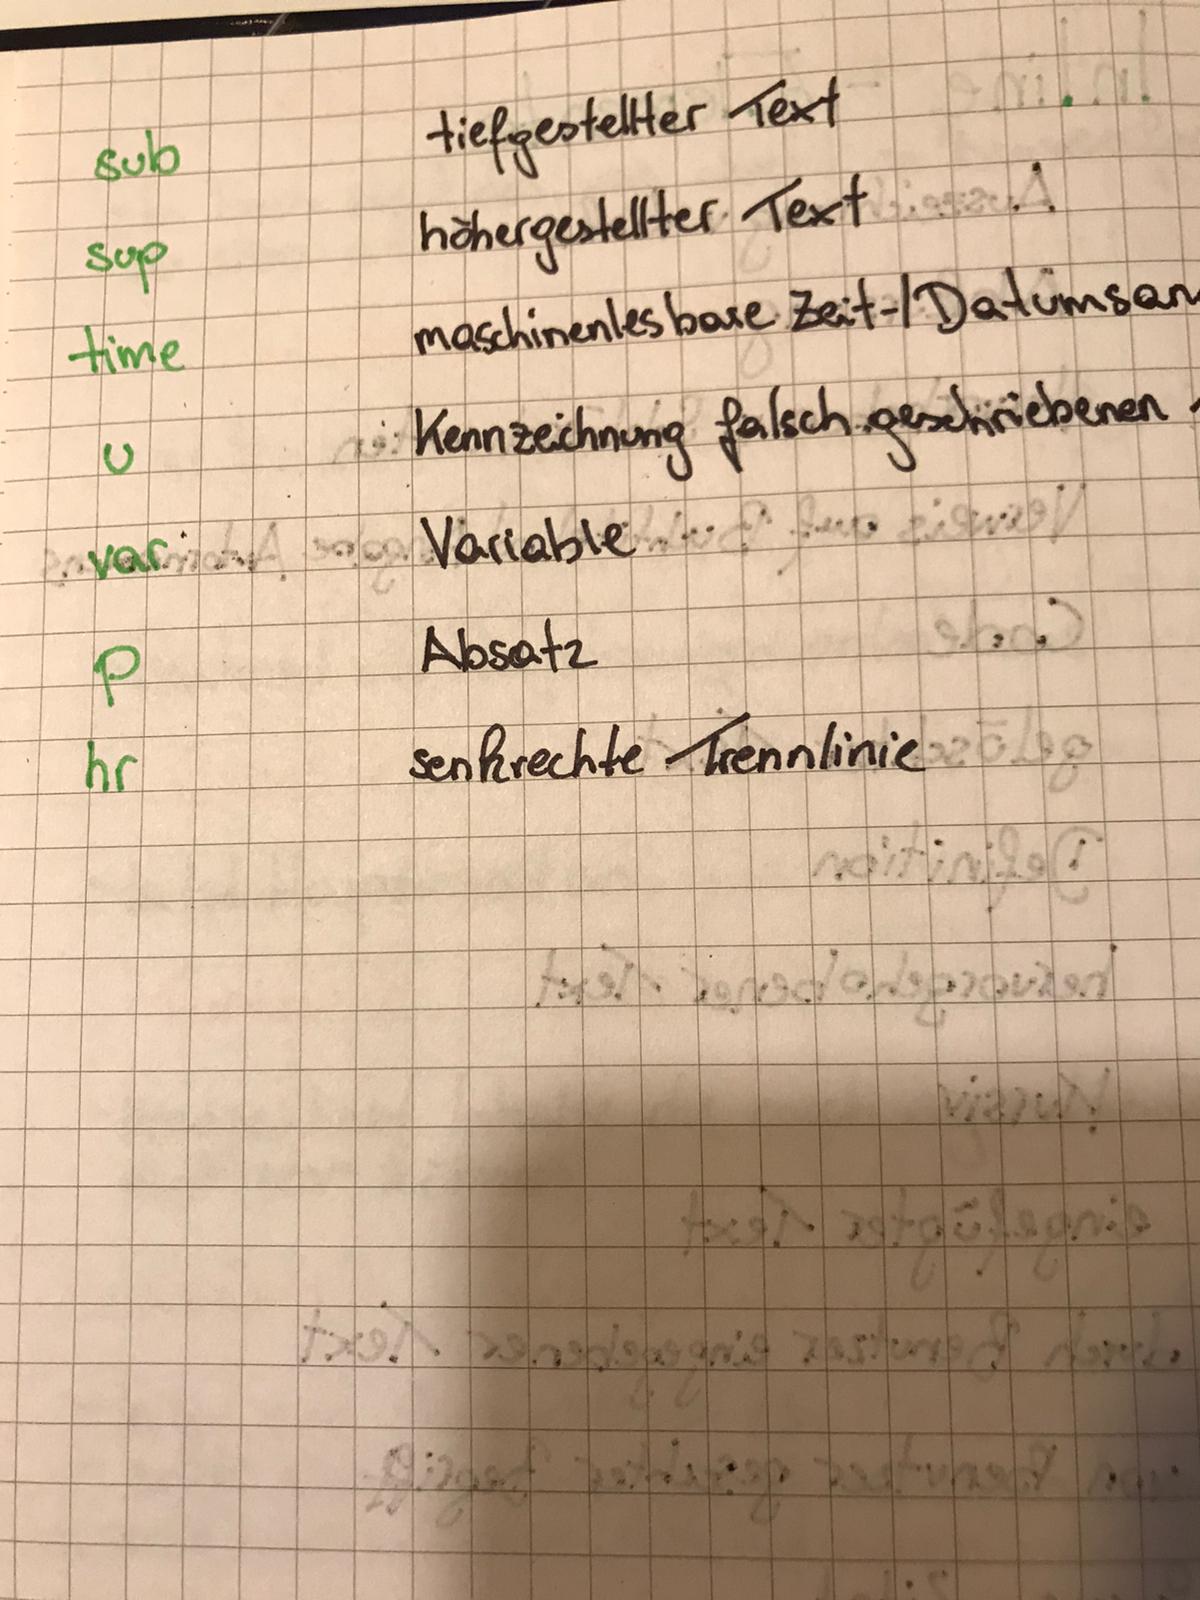 sub tiefgestellter Text
sup höhergestellter Text
time maschinenlesbare Zeit-/Datumsan
u Kennzeichnung falsch geschriebenen
var Variable
p Absatz
hr senkrechte Trennlinie